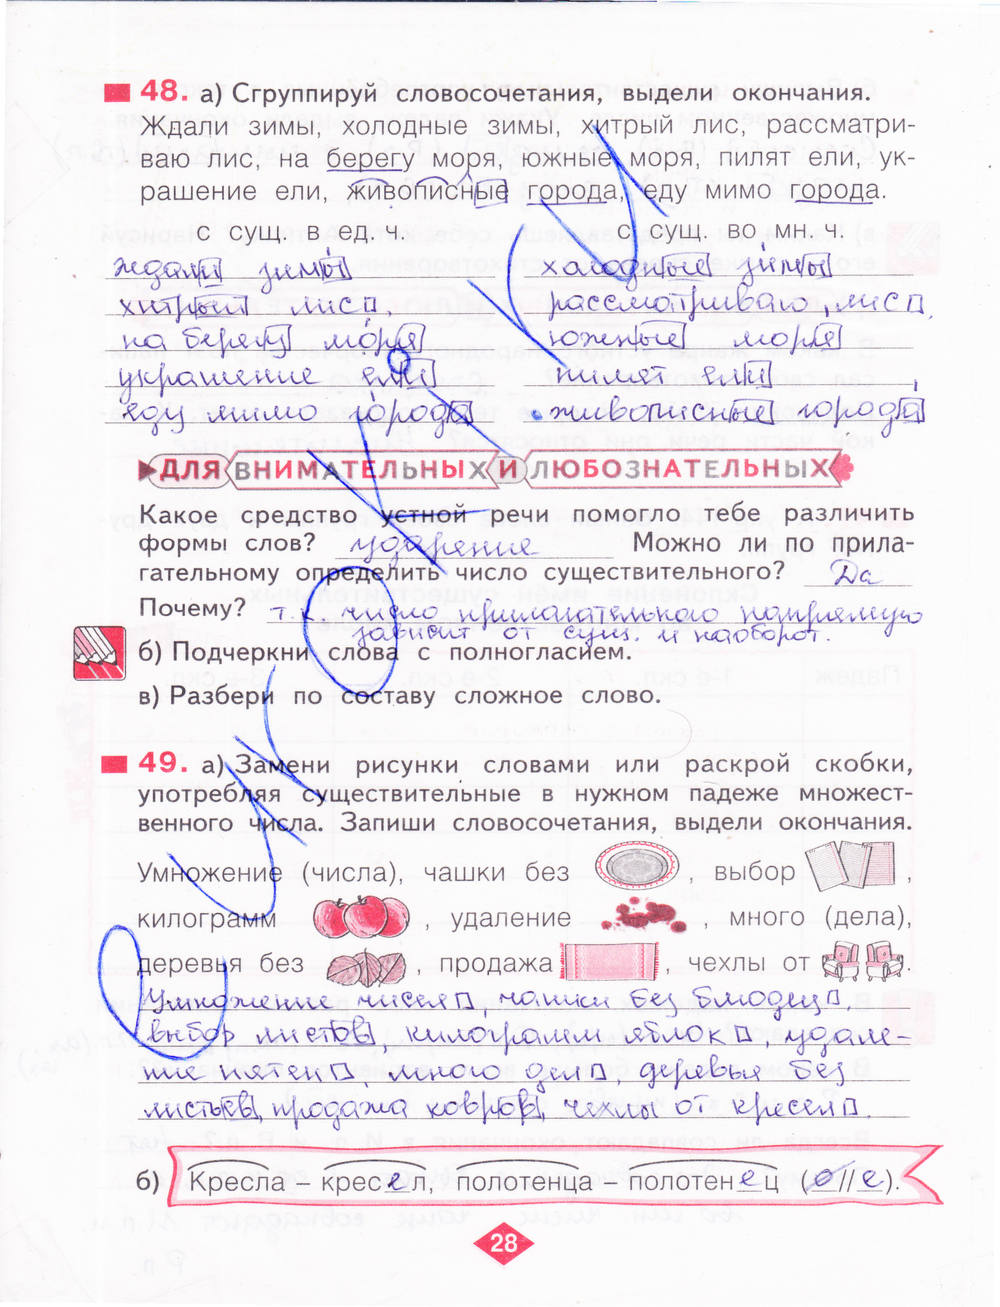 48. а) Сгруппируй словосочетания, выдели окончания.
Ждали зимы, холодные зимы, хитрый лис, рассматри-
ваю лис, на берегу моря, южные моря, пилят ели, ук-
рашение ели, живописные города, еду мимо города.
с сущ. в ед. ч. с сущ. во мн. ч.
ждали зимы холодные зимы
хитрый лис, рассматриваю лис,
на берегу моря южные моря
украшение ели пилят ели
еду мимо города живописные города
ДЛЯ ВНИМАТЕЛЬНЫХ И ЛЮБОЗНАТЕЛЬНЫХ
Какое средство устной речи помогло тебе различить
формы слов? ударение Можно ли по прила-
гательному определить число существительного? Да
Почему? т.к число прилагательного напрямую
зависит от сущ. и наоборот.
б) Подчеркни слова с полногласием.
в) Разбери по составу сложное слово.
49. а) Замени рисунки словами или раскрой скобки,
употребляя существительные в нужном падеже множест-
венного числа. Запиши словосочетания, выдели окончания.
Умножение (числа), чашки без , выбор ,
килограмм , удаление , много (дела),
деревья без , продажа , чехлы от .
Умножение чисел, чашки без блюдец,
выбор листов, килограмм яблок, удале-
ние пятен, много дел, деревья без
листьев, продажа ковров, чехлы от кресел.
б) Кресла – кресел, полотенца – полотенец (о//е).
28